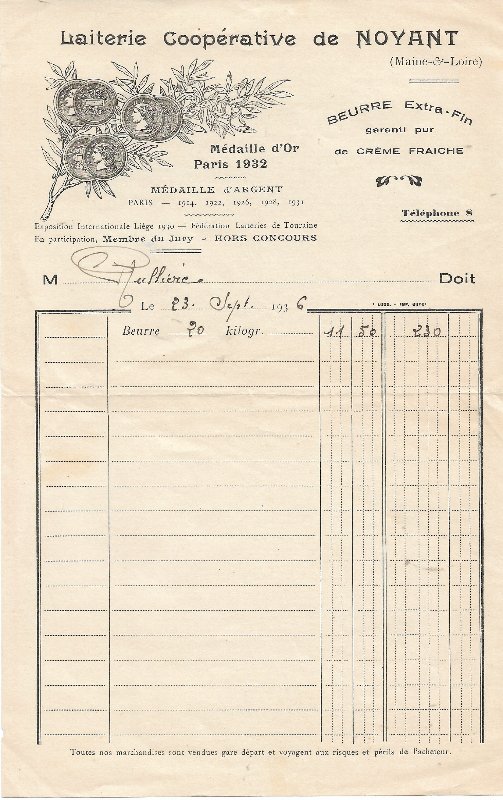 Laiterie Coopérative de NOYANT
(Maine-&-Loire)
BEURRE Extra-Fin
garanti pur
de CRÈME FRAICHE
Téléphone 8
Médaille d'Or
Paris 1932
MÉDAILLE d'ARGENT
PARIS — 1914, 1922, 1926, 1928, 1931
Exposition Internationale Liège 1930 — Fédération Laiteries de Touraine
En participation, Membre du Jury - HORS CONCOURS
M Rullière Doit
Le 23 Sept. 1936
Beurre 20 kilogr. 11 50 230
Toutes nos marchandises sont vendues gare départ et voyagent aux risques et périls de l'acheteur.